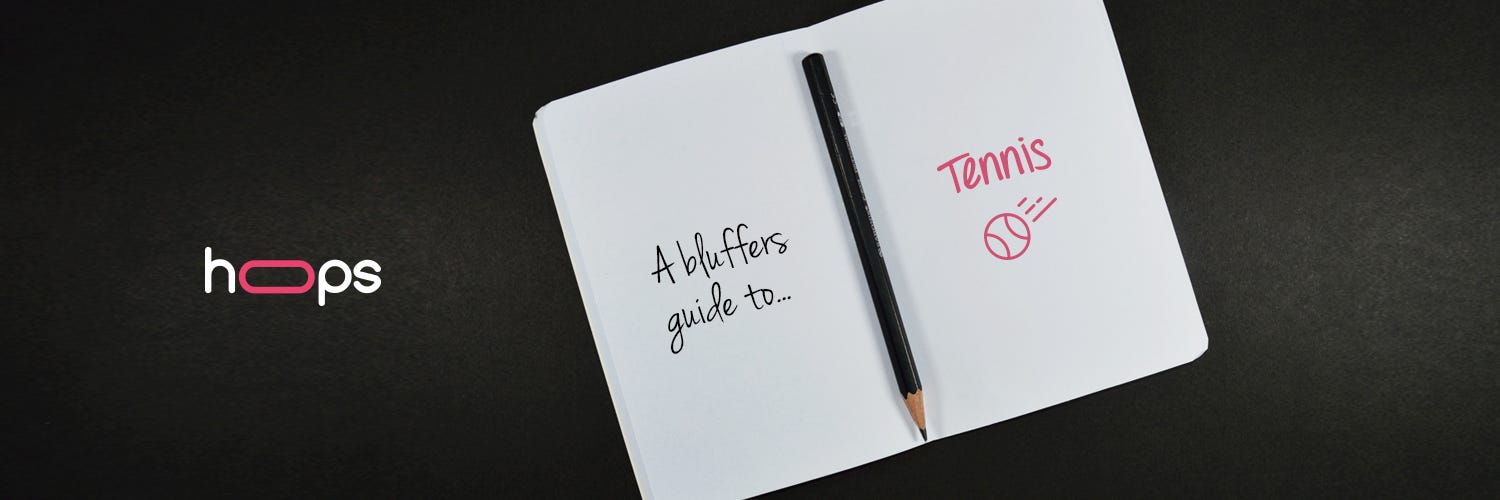 hoops
A bluffers
guide to...
Tennis